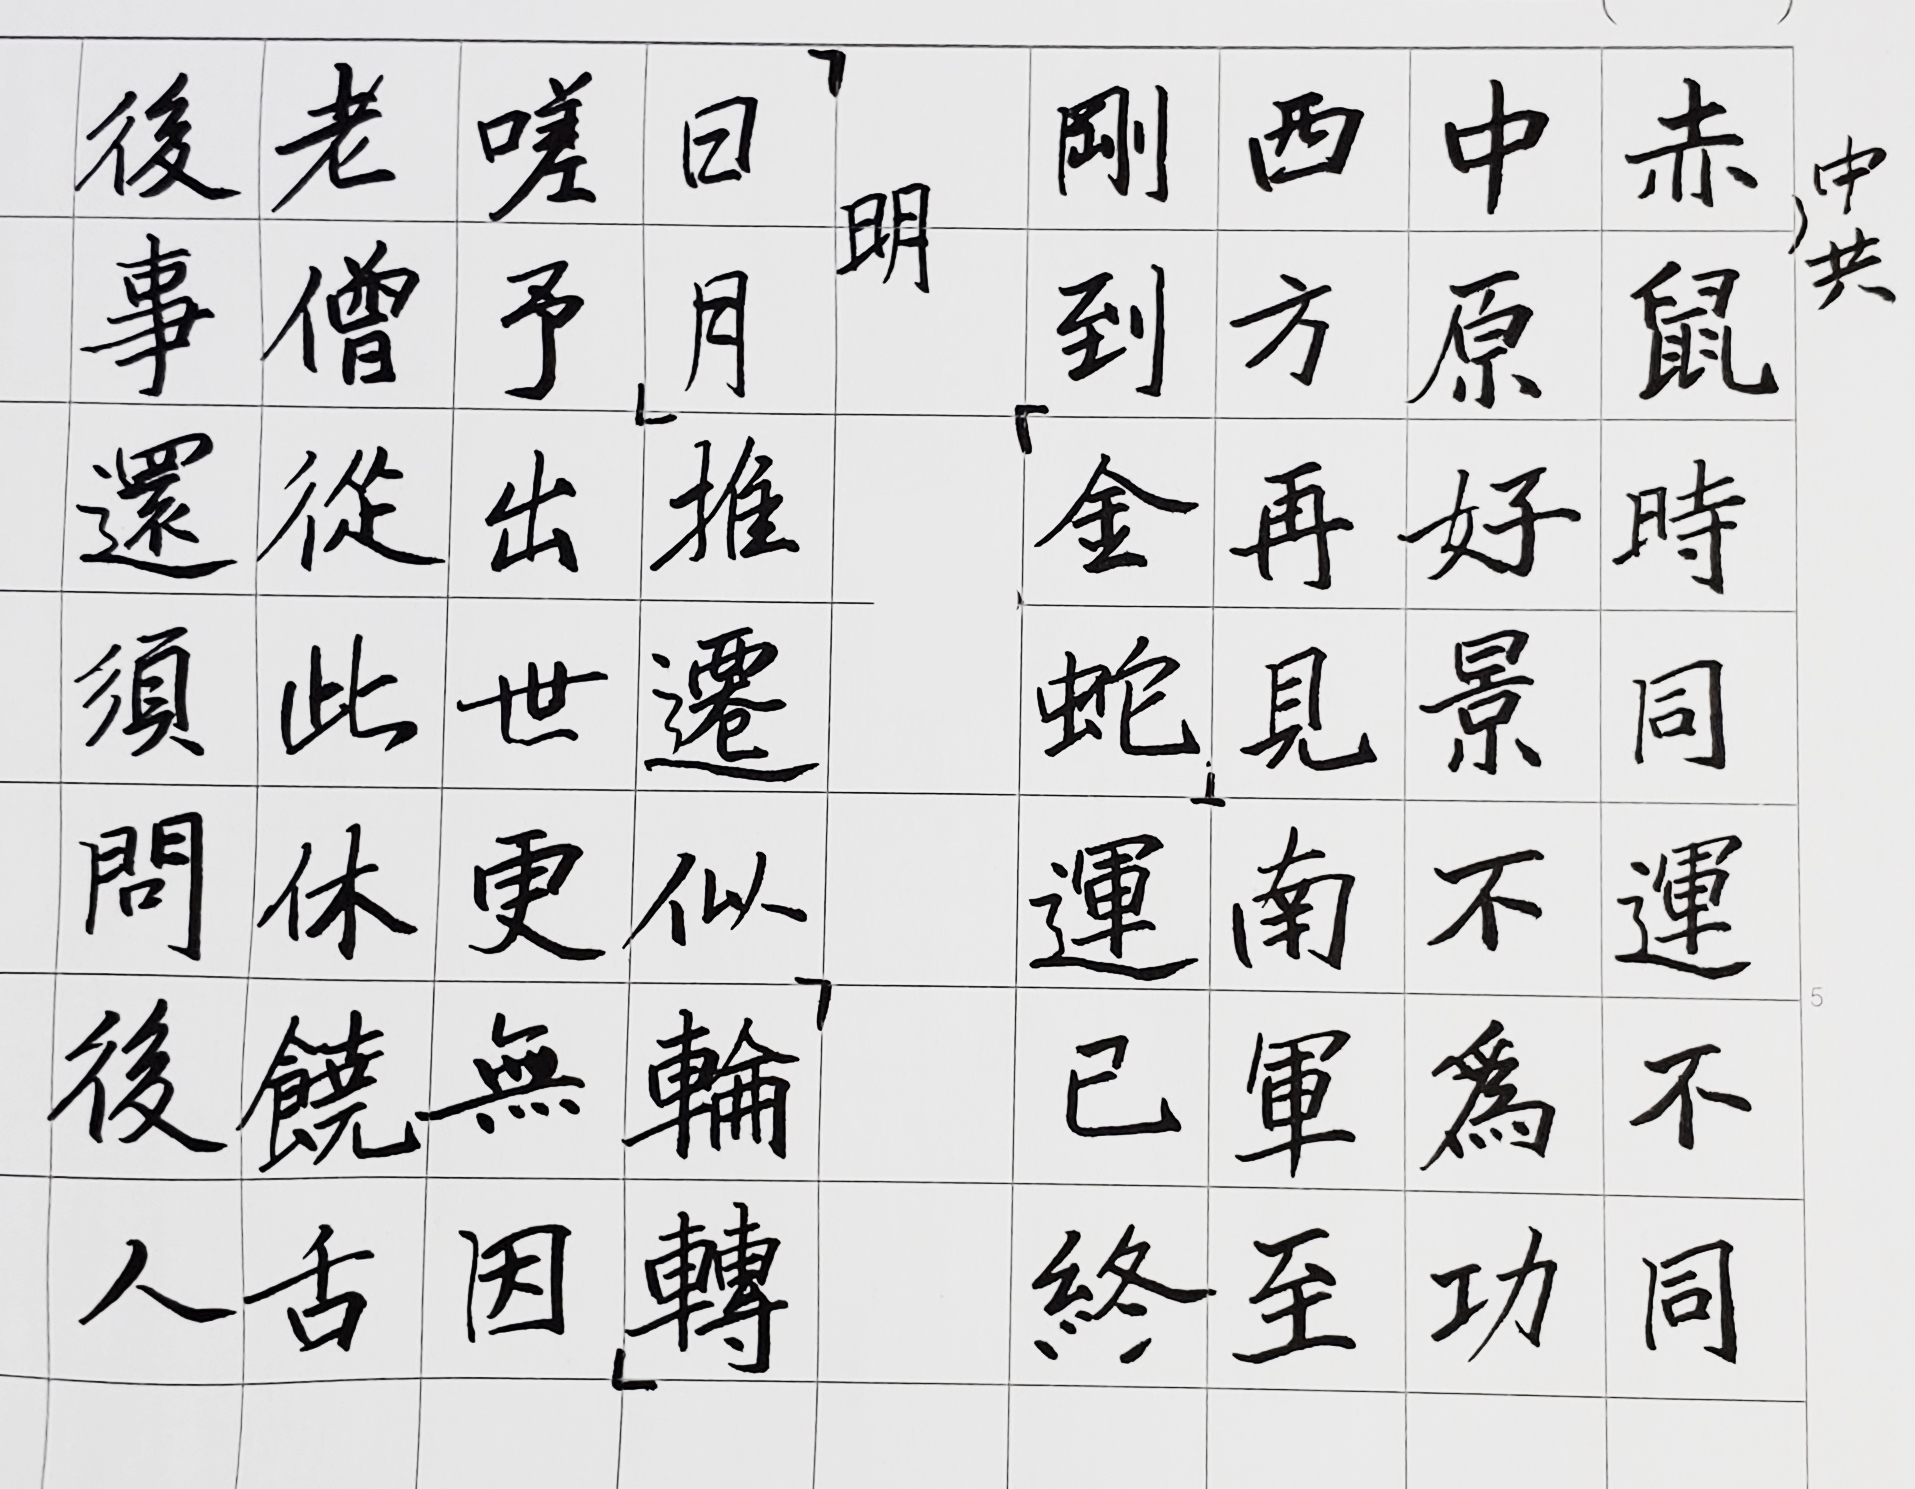 中共
赤鼠時同運不同
中原好景不爲功
西方再見南軍至
剛到金蛇運已終
明
日月推遷似輪轉
嗟予出世更無因
老僧從此休饒舌
後事還須問後人
5